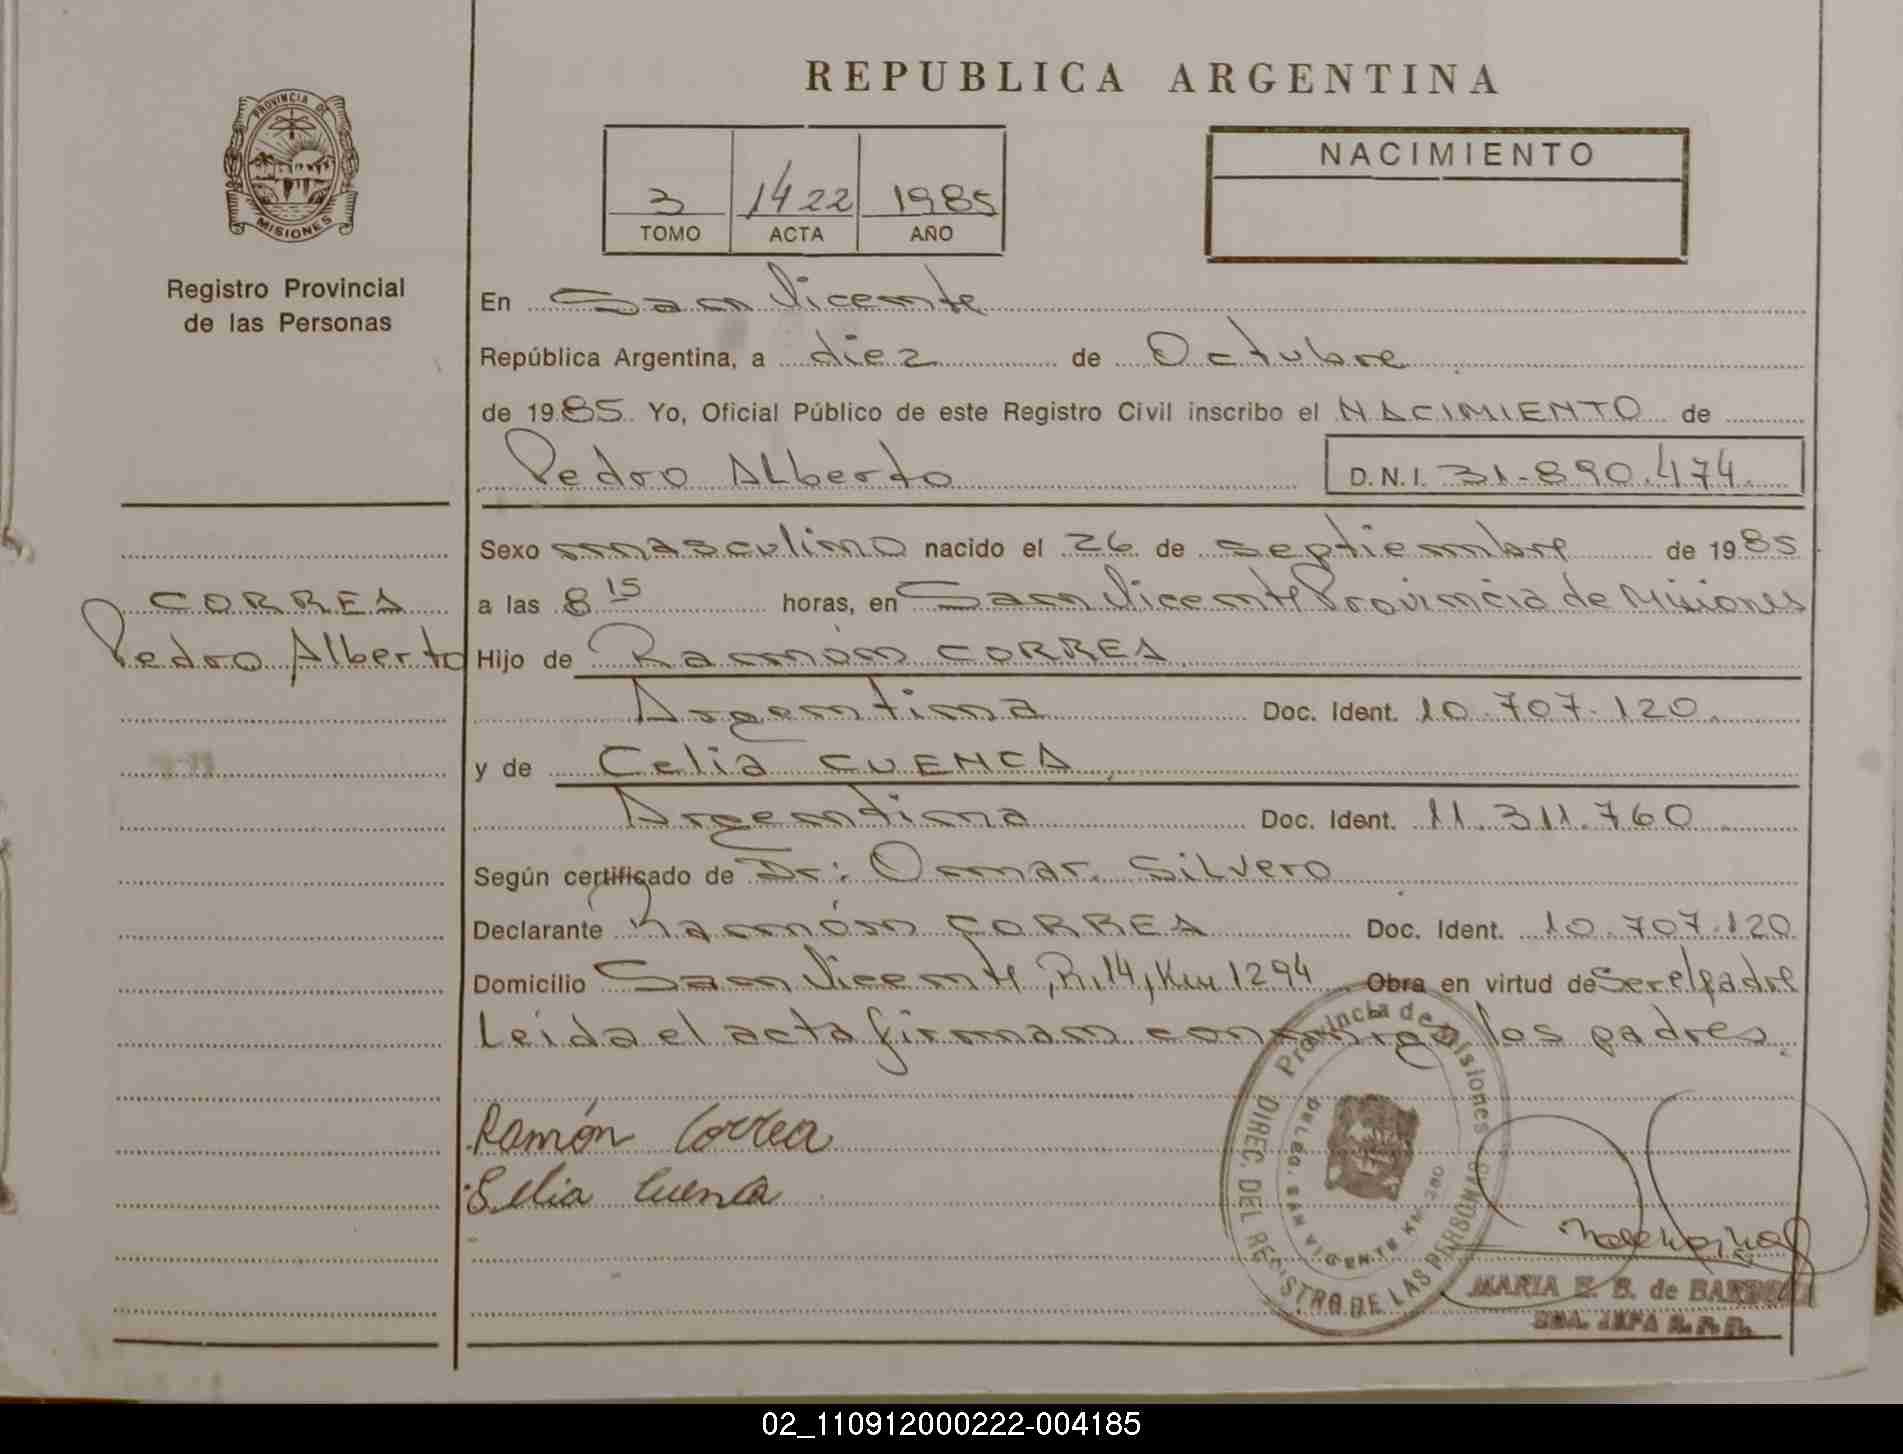 REPUBLICA ARGENTINA
PROVINCIA DE
MISIONES
Registro Provincial
de las Personas
3 1422 1985
TOMO ACTA AÑO
NACIMIENTO
En San Vicente
República Argentina, a diez de Octubre
de 1985 Yo, Oficial Público de este Registro Civil inscribo el NACIMIENTO de
Pedro Alberto D.N.I. 31.890.474
Sexo masculino nacido el 26 de septiembre de 1985
CORREA
Pedro Alberto
a las 8 15 horas, en San Vicente Provincia de Misiones
Hijo de Ramón CORREA
Argentina Doc. Ident. 10.707.120
y de Celia CUENCA,
Argentina Doc. Ident. 11.311.760
Según certificado de Dr: Omar Silvero
Declarante Ramón CORREA Doc. Ident. 10.707.120
Domicilio San Vicente, R.14, Km 1294 Obra en virtud de Ser el padre
Leída el acta firman conmigo los padres.
Ramón Correa
Selia Cuenca
Provincia de Misiones
DIREC. DEL REGISTRO DE LAS PERSONAS
DELEG. SAN VICENTE KM. 280
MARIA E. B. de
JEFA R.P.P.
02_110912000222-004185